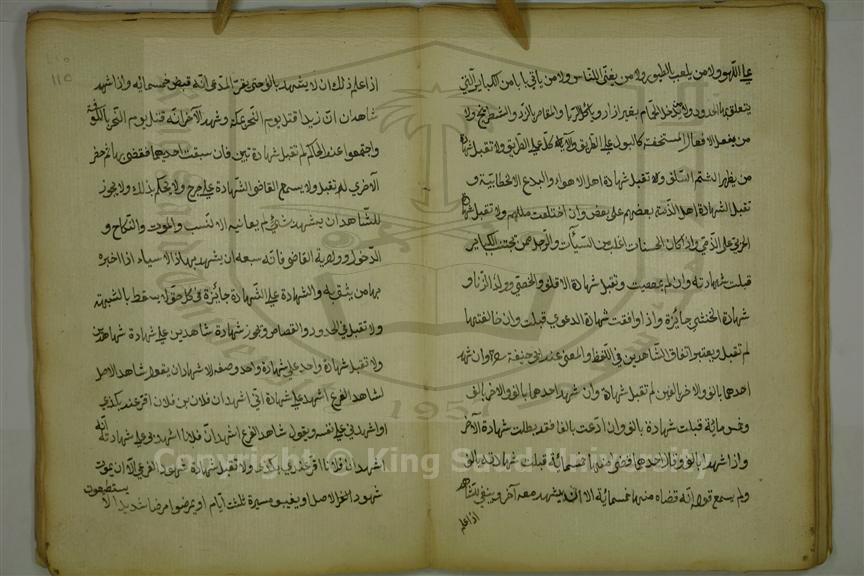 على اللهو ولا من يلعب بالطيور ولا من يغنى للناس ولا من ياتي بابا من الكباير التي
يتعلق بها الحدود ولا من يدخل الحمام بغير ازار وياكل الربا والمقامر بالنرد والشطرنج ولا
من يفعل الافعال المستخفة كالبول على الطريق والاكل على الطريق ولا تقبل شهادة
من يظهر الشتم السلف ولا تقبل شهادة اهل الاهواء والبدع الا الخطابية و
تقبل الشهادة اهل الذمة بعضهم على بعض وان اختلفت مللهم ولا تقبل شهادة
الحربي على الذمي واذا كان الحسنات اغلب من السيئات والرجل ممن تجتنب الكباير
قبلت شهادته وان لم بمعصيت وتقبل شهادة الاقلف والخصي وولد الزنا و
شهادة الخنثى جايزة واذا وافقت شهادة الدعوى قبلت وان خالفتها
لم تقبل ويعتبر اتفاق الشاهدين في اللفظ والمعنى عند ابي حنيفة وان شهد
احدها بالف والاخر بالفين لم تقبل شهادة وان شهد احدهما بالف والاخر بالف
وخمس مائة قبلت شهادة بالف وان ادعت بالفا فقد بطلت شهادة الآخر
واذا شهدا بالف وقال احدهما قضى منها خمسمائة قبلت شهادته بالف
ولم يسمع قوله انه قضاه منها خمسمائة الا ان يشهد معه آخر وينبغي للشاهد
اذا علم
اذا علم ذلك ان لا يشهد بالف حتى يقر المدعى انه قبض خمسمائه واذا شهد
شاهدان ان زيدا قتل يوم النحر بمكة وشهد الآخر انه قتل يوم النحر بالكوفة
واجتمعوا عند الحاكم لم تقبل شهادتين فان سبقت احديهما فقضى بها ثم حضر
الآخرى لم تقبل ولا يسمع القاضى الشهادة على جرح ولا يحكم بذلك ولا يجوز
للشاهد ان يشهد بشئ لم يعاينه الا النسب والموت والنكاح و
الدخول وولاية القاضى فانه يسعه ان يشهد بهذا الاسياء اذا اخبره
بها من يثق به والشهادة على الشهادة جائزة في كل حق لا يسقط بالشبهة
ولا تقبل في الحدود والقصاص ويجوز شهادة شاهدين على شهادة شاهدين
ولا تقبل شهادة واحد على شهادة واحد وصفه الاشهاد ان يقول شاهد الاصل
لشاهد الفرع اشهد على شهادة اني اشهد ان فلان بن فلان اقر عند بكذى
او اشهدني على نفسه ويقول شاهد الفرع اشهد ان فلانا اشهدني على شهادته انه
اشهد ان فلانا اقر عندى بكذى ولا تقبل شهادة شهود الفرع الا ان يموت
شهود الاصل او يغيبو مسيرة ثلث ايام او يمرضوا مرضا شديدا لا يستطيعون
Copyright © King Saud University
1957